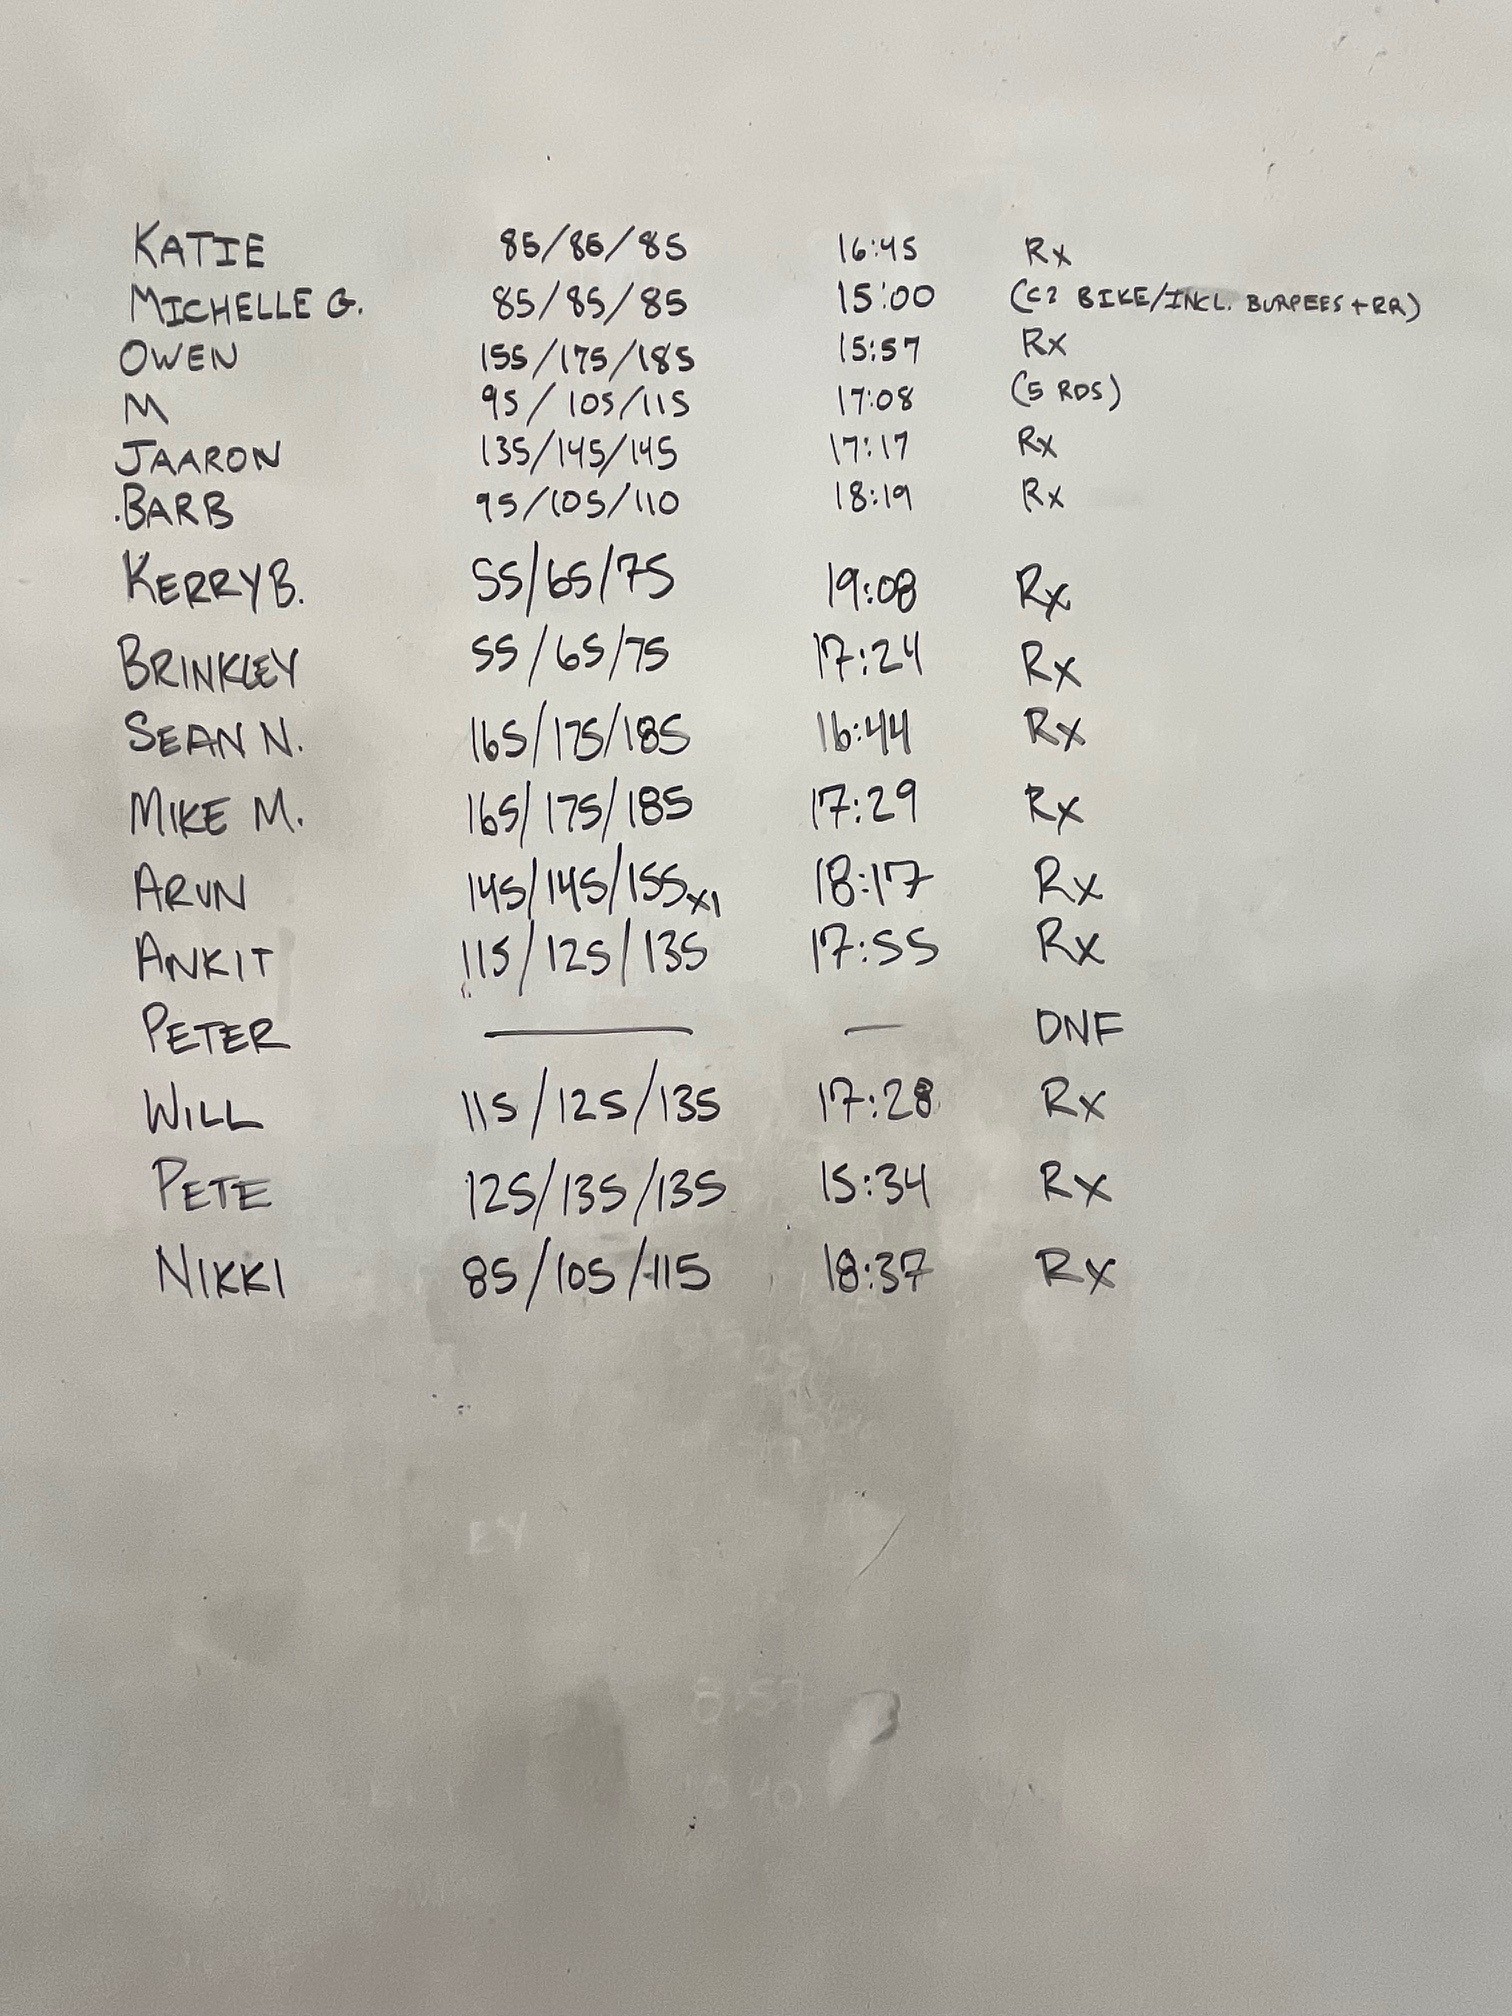 KATIE 85/85/85 16:45 Rx
MICHELLE G. 85/85/85 15:00 (C2 BIKE/INCL. BURPEES + RR)
OWEN 155/175/185 15:57 Rx
M 95/105/115 17:08 (5 RDS)
JAARON 135/145/145 17:17 Rx
BARB 95/105/110 18:19 Rx
KERRY B. 55/65/75 19:08 Rx
BRINKLEY 55/65/75 17:24 Rx
SEAN N. 165/175/185 16:44 Rx
MIKE M. 165/175/185 17:29 Rx
ARUN 145/145/155x1 18:17 Rx
ANKIT 115/125/135 17:55 Rx
PETER — — DNF
WILL 115/125/135 17:28 Rx
PETE 125/135/135 15:34 Rx
NIKKI 85/105/115 18:37 Rx